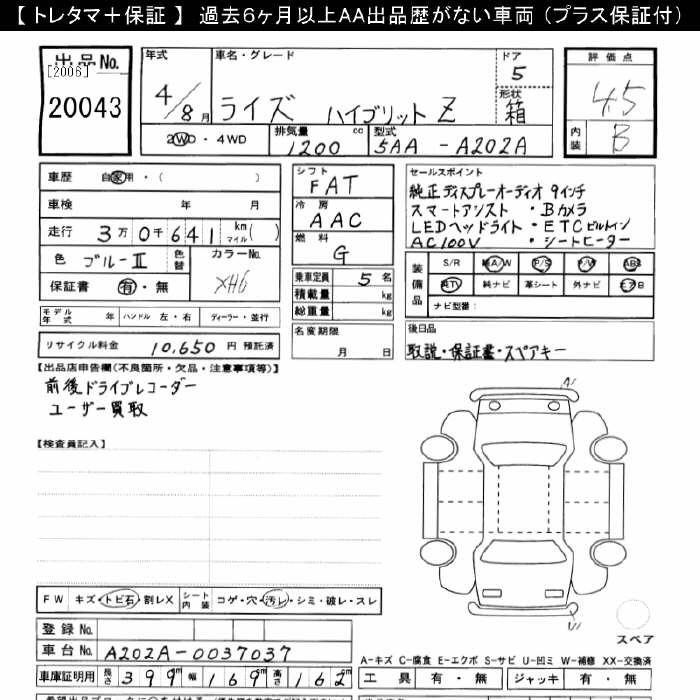 【 トレタマ＋保証 】 過去6ヶ月以上AA出品歴がない車両（プラス保証付）
出品No.
[2006]
20043
年式
4/8月
車名・グレード
ライズ ハイブリット Z
ドア
5
形状
箱
評価点
4.5
内装
B
2WD・4WD
排気量
1200 cc
型式
5AA - A202A
車歴 自家用・( )
車検 年 月
走行 3万0千641 km マイル ( )
色 ブルーII 色替 カラーNo.
XH6
保証書 有・無
モデル年式 年 ハンドル 左・右 ディーラー・並行
リサイクル料金 10,650 円 預託済
シフト
FAT
冷房
AAC
燃料
G
乗車定員 5 名
積載量 kg
総重量 kg
名変期限
月 日
セールスポイント
純正ディスプレーオーディオ 9インチ
スマートアシスト ・Bカメラ
LEDヘッドライト ・ETCビルトイン
AC100V ・シートヒーター
装備品
S/R 純A/W P/S P/W ABS
純TV 純ナビ 革シート 外ナビ エアB
ナビ型番：
後日品
取説・保証書・スペアキー
【出品店申告欄(不良箇所・欠品・注意事項等)】
前後ドライブレコーダー
ユーザー買取
【検査員記入】
FW キズ・トビ石・割レX シート内装 コゲ・穴・汚レ・シミ・破レ・スレ
登録 No.
車台 No. A202A-0037037
車庫証明用 長さ 399 m 幅 169 m 高さ 162 m
スペア
A-キズ C-腐食 E-エクボ S-サビ U-凹ミ W-補修 XX-交換済
工具 有・無 ジャッキ 有・無